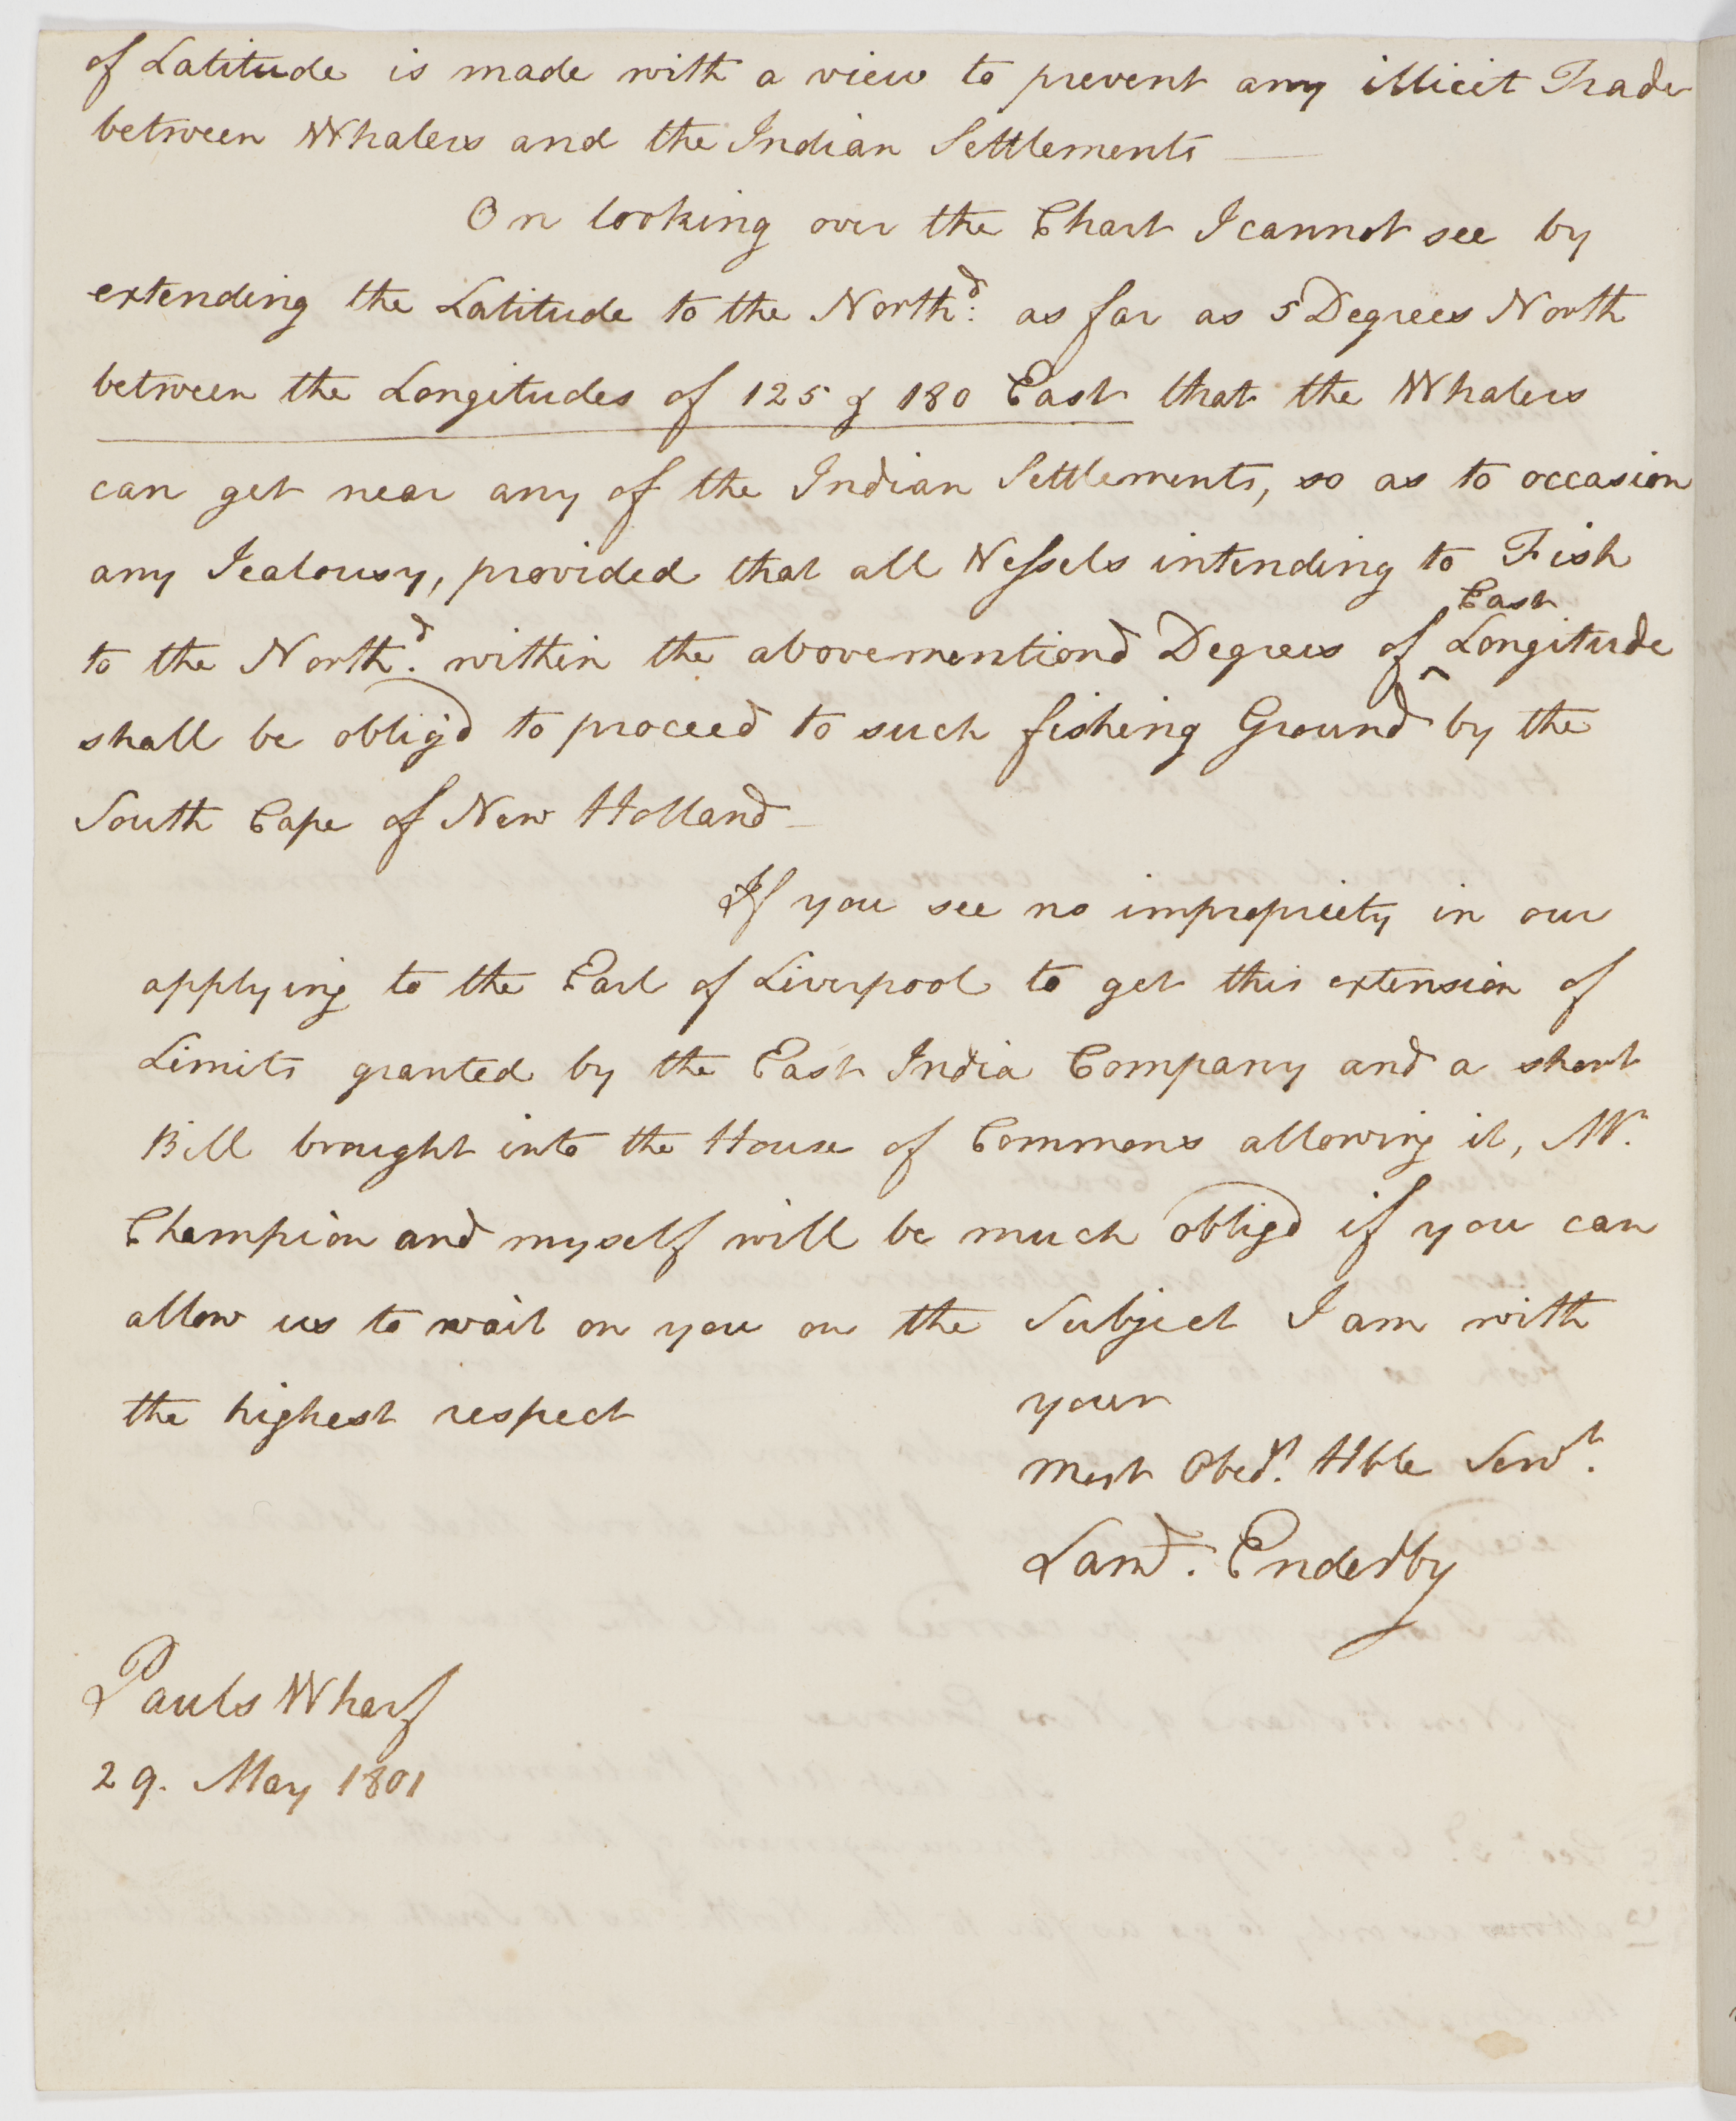 of Latitude is made with a view to prevent any illicit Trade
between Whalers and the Indian Settlements —
On looking over the Chart I cannot see by
extending the Latitude to the North.d as far as 5 Degrees North
between the Longitudes of 125 & 180 East that the Whalers
can get near any of the Indian Settlements, so as to occasion
any Jealousy, provided that all Vessels intending to Fish
East
to the North.d within the abovementiond Degrees of ^ Longitude
shall be obligd to proceed to such fishing Ground by the
South Cape of New Holland —
If you see no impropriety in our
applying to the Earl of Liverpool to get this extension of
Limits granted by the East India Company and a short
Bill brought into the House of Commons allowing it, Mr.
Champion and myself will be much obligd if you can
allow us to wait on you on the Subject I am with
the highest respect
your
most Obed.t Hble Serv.t
Sam.l Enderby
Pauls Wharf
29. May 1801